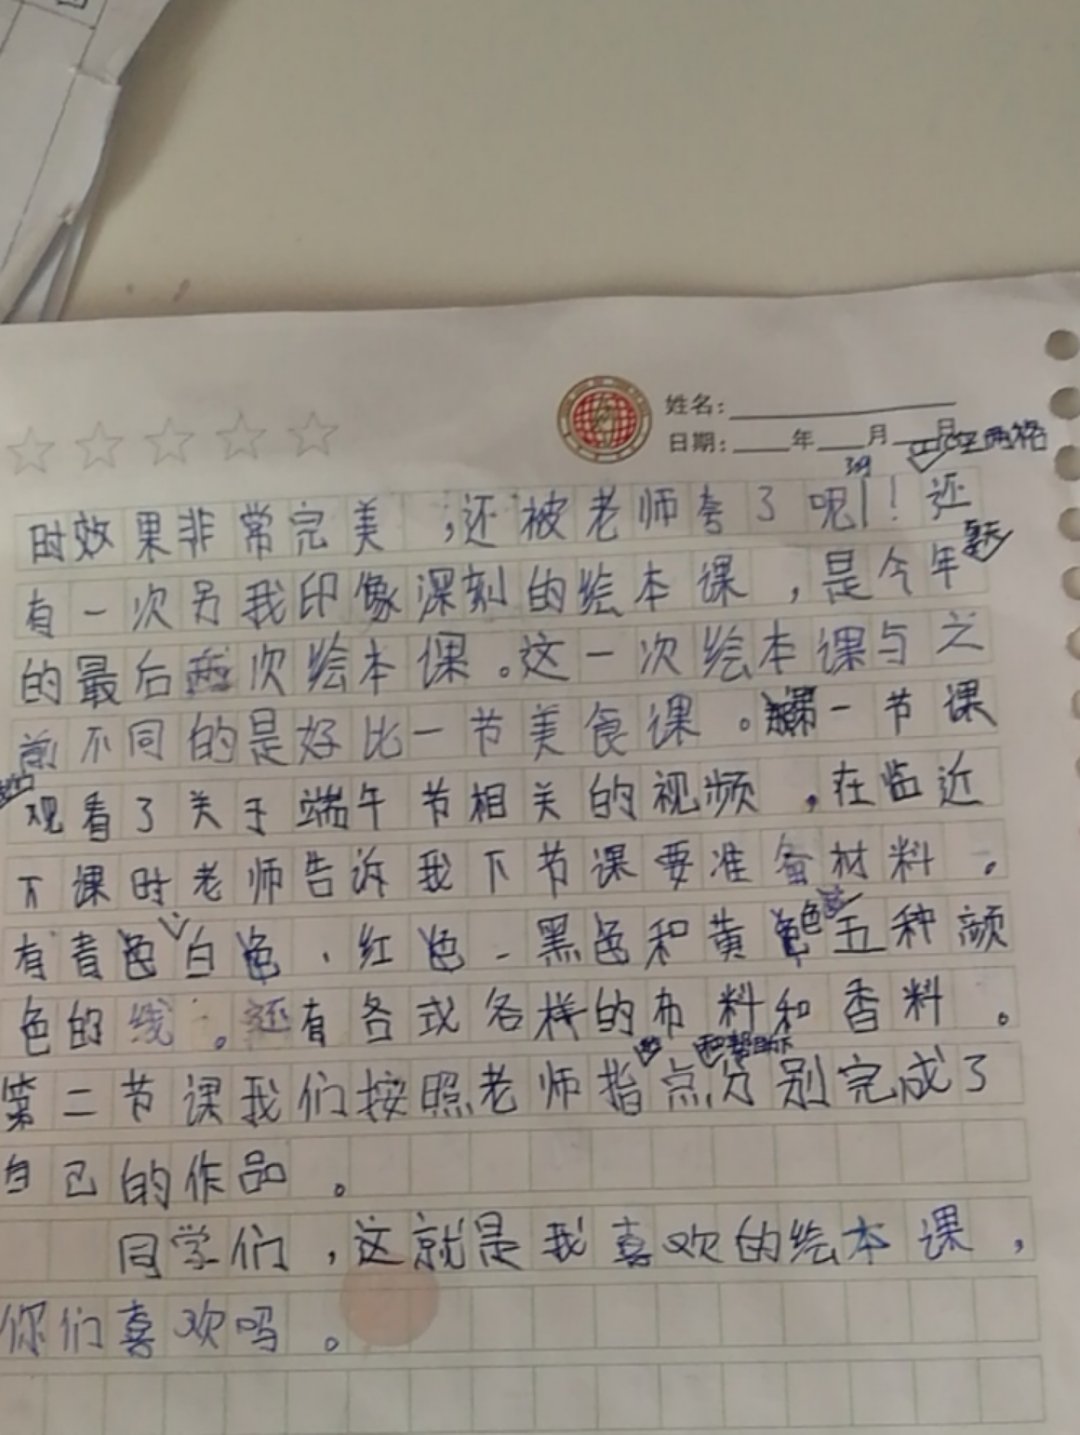 姓名:
日期: 年 月 日
空两格
时效果非常完美,还被老师夸了呢!还
有一次另我印像深刻的绘本课,是今年
的最后两次绘本课。这一次绘本课与之
前不同的是好比一节美食课。第一节课
观看了关于端午节相关的视频,在临近
下课时老师告诉我下节课要准备材料。
有青色、白色、红色、黑色和黄色五种颜
色的线。还有各式各样的布料和香料。
第二节课我们按照老师指点分别完成了
自己的作品。
同学们,这就是我喜欢的绘本课,
你们喜欢吗。